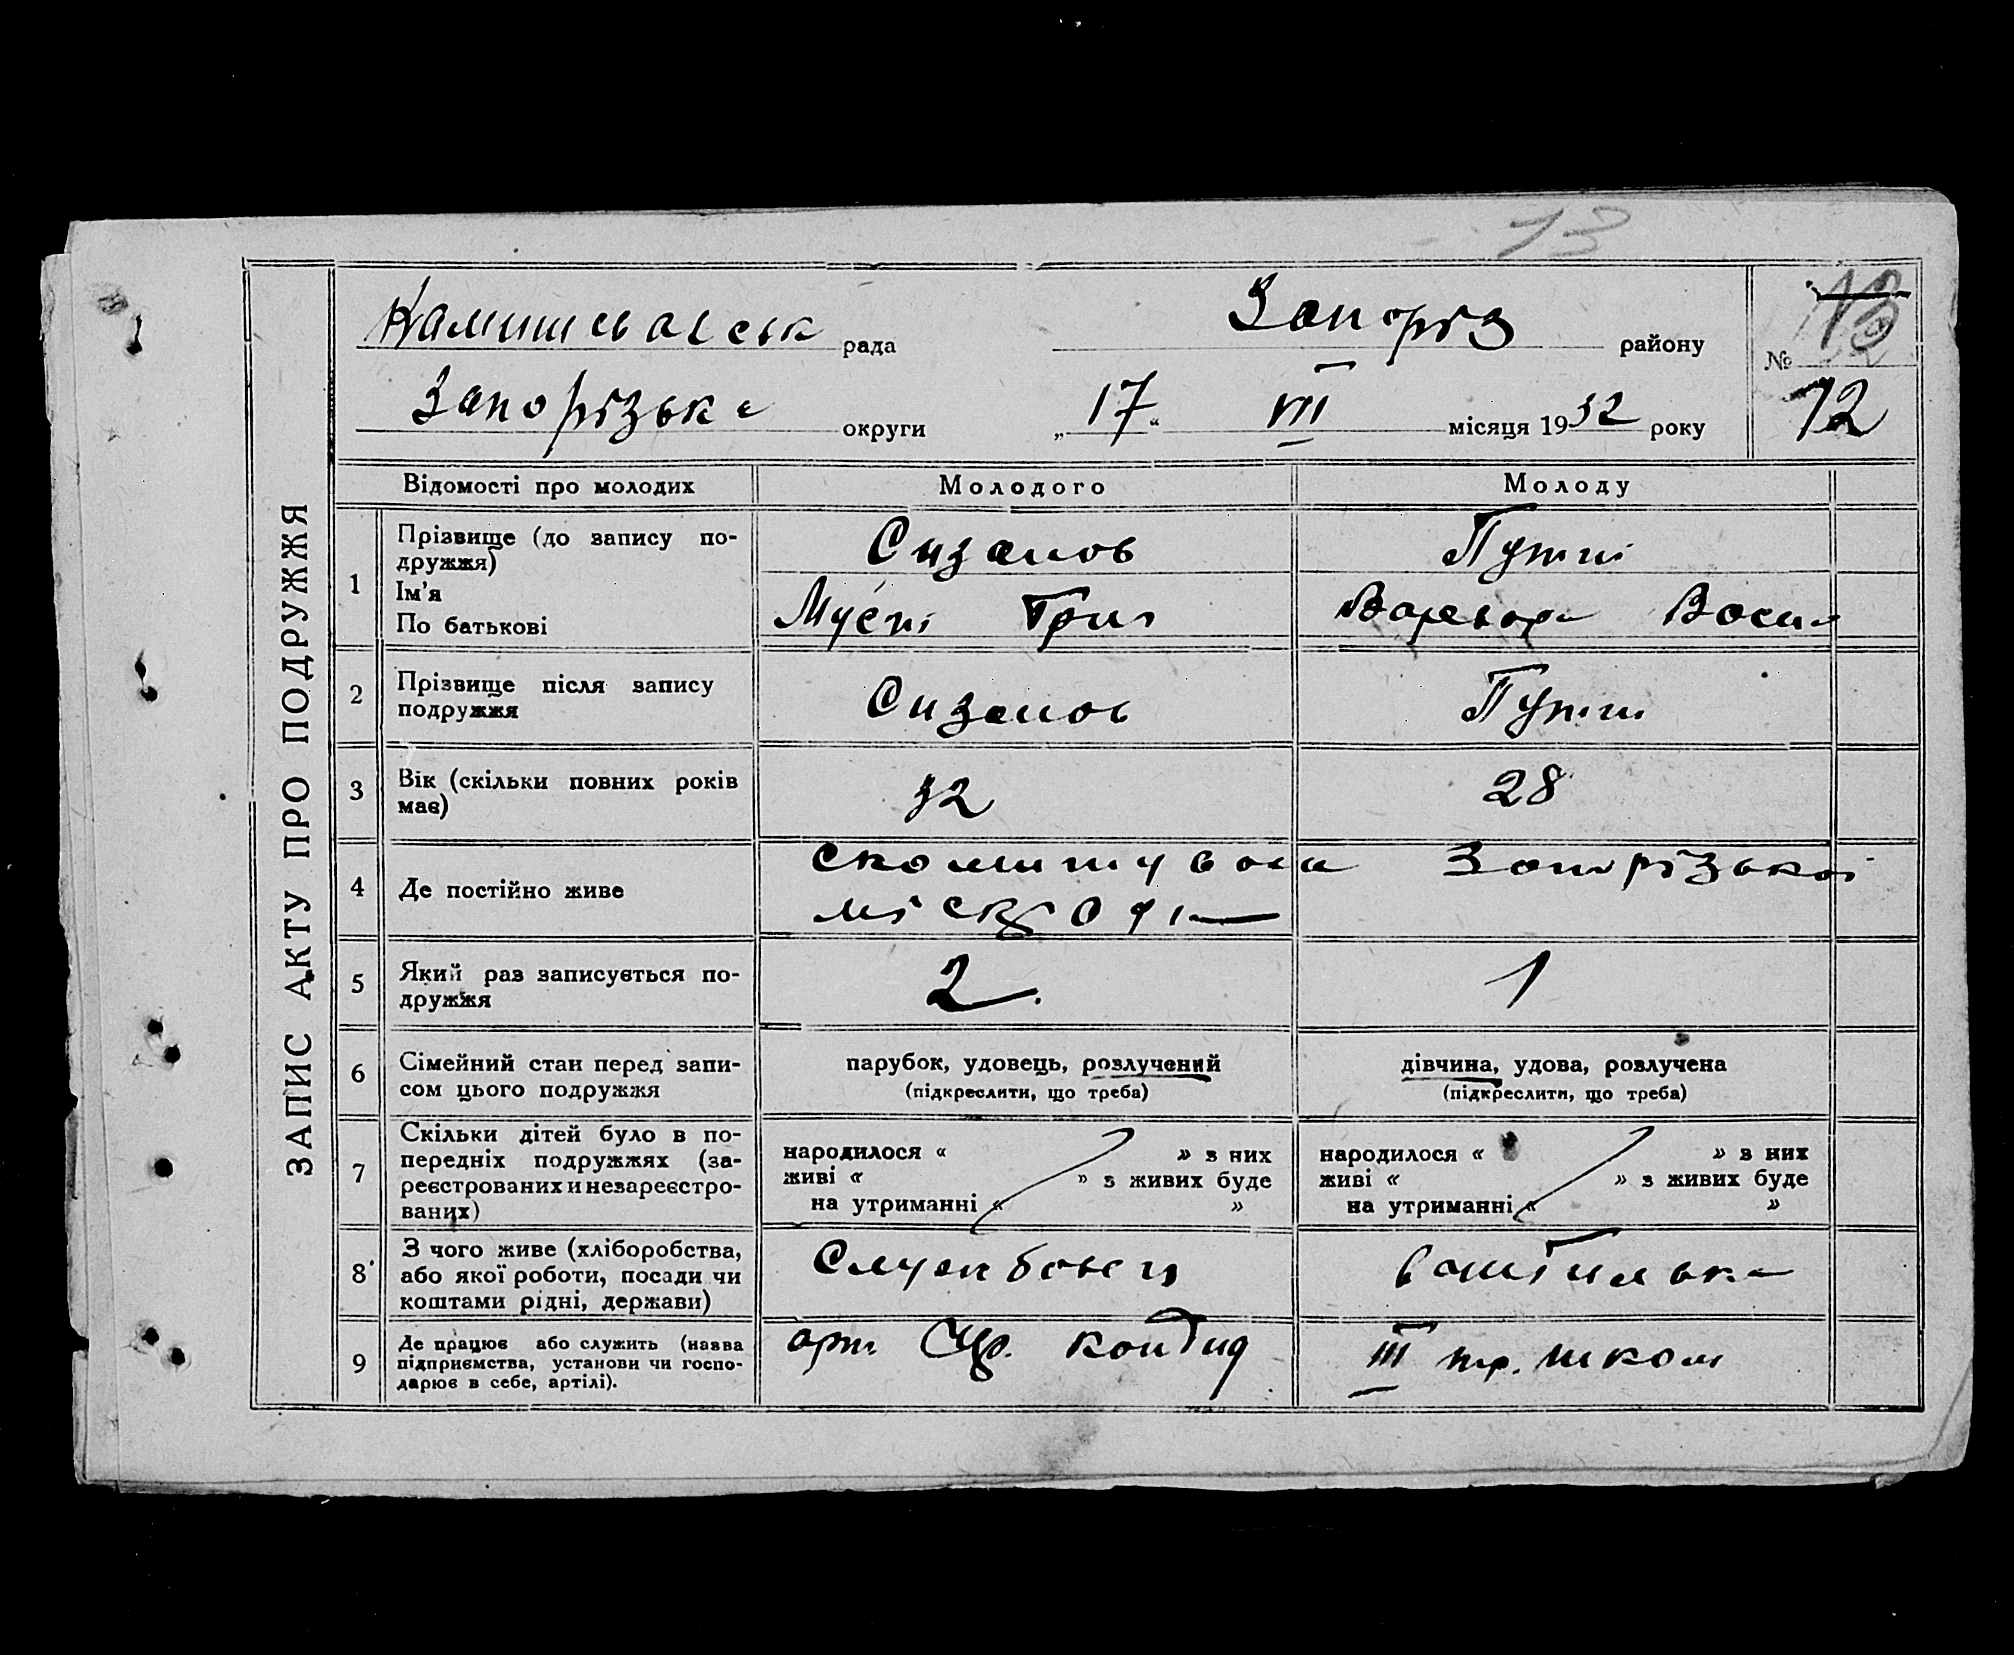 13
Запоріз району
№
рада
Запорізька округи „17“ VIII місяця 1932 року
12
ЗАПИС АКТУ ПРО ПОДРУЖЖЯ
Відомості про молодих Молодого Молоду
1 Прізвище (до запису по-
дружжя)
Ім'я
По батькові
Сизанов
Григ
Варвара Васил
2 Прізвище після запису
подружжя
Сизанов
3 Вік (скільки повних років
має)
32 28
4 Де постійно живе
Запорізької
5 Який раз записується по-
дружжя
2. 1
6 Сімейний стан перед запи-
сом цього подружжя
парубок, удовець, розлучений
(підкреслити, що треба)
дівчина, удова, розлучена
(підкреслити, що треба)
7 Скільки дітей було в по-
передніх подружжях (за-
реєстрованих и незареєстро-
ваних)
народилося « » з них
живі « » з живих буде
на утриманні « »
народилося « » з них
живі « » з живих буде
на утриманні « »
8 З чого живе (хліборобства,
або якої роботи, посади чи
коштами рідні, держави)
Службовец
9 Де працює або служить (назва
підприємства, установи чи госпо-
дарює в себе, артілі).
III тр. школи